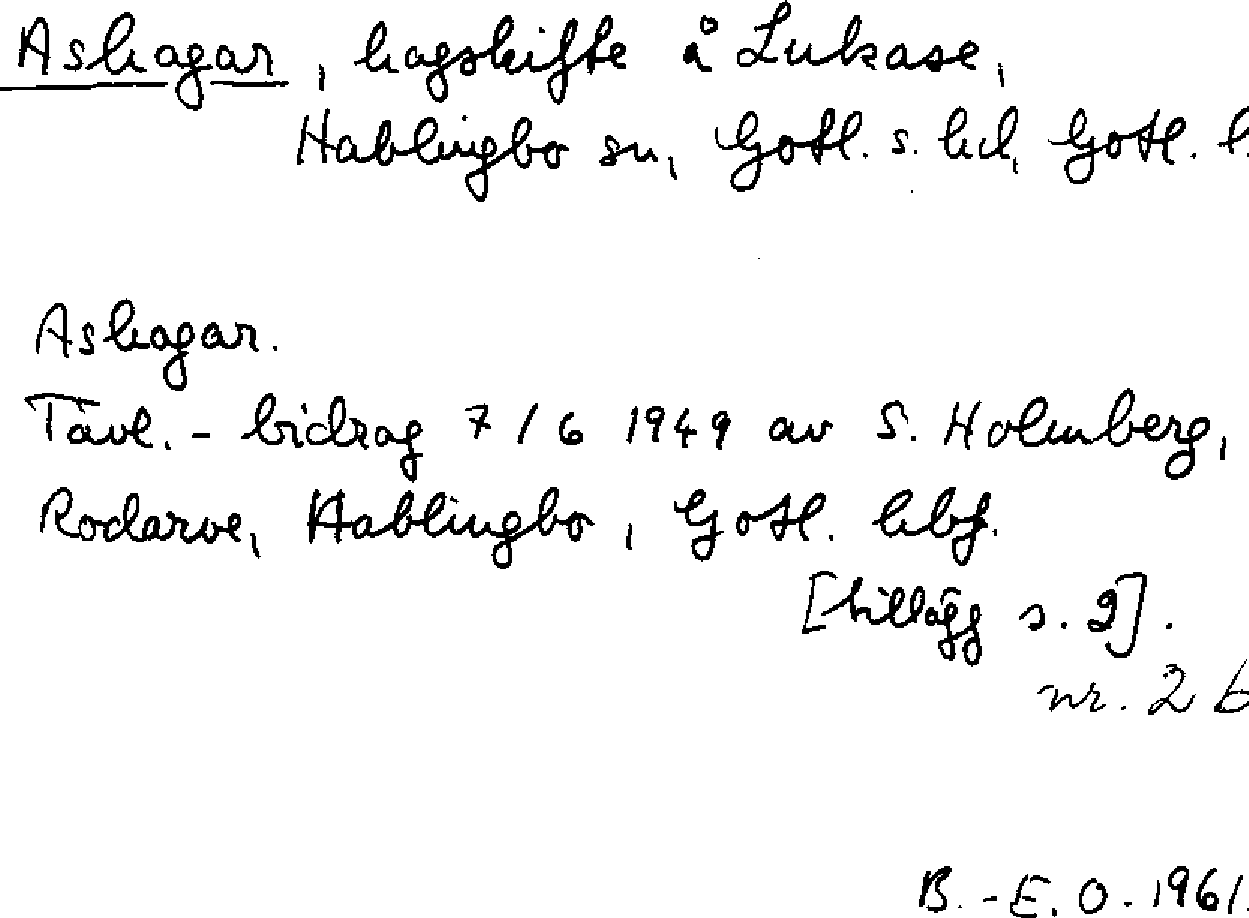 Ashagar, hagskifte å Lukase,
Hablingbo sn, Gotl. s. hd, Gotl. l.
Ashagar.
Tävl. - bidrag 7/6 1949 av S. Holmberg,
Rodarve, Hablingbo, Gotl. hbf.
[tillägg s. 2].
nr. 2 b
B.-E. O. 1961.